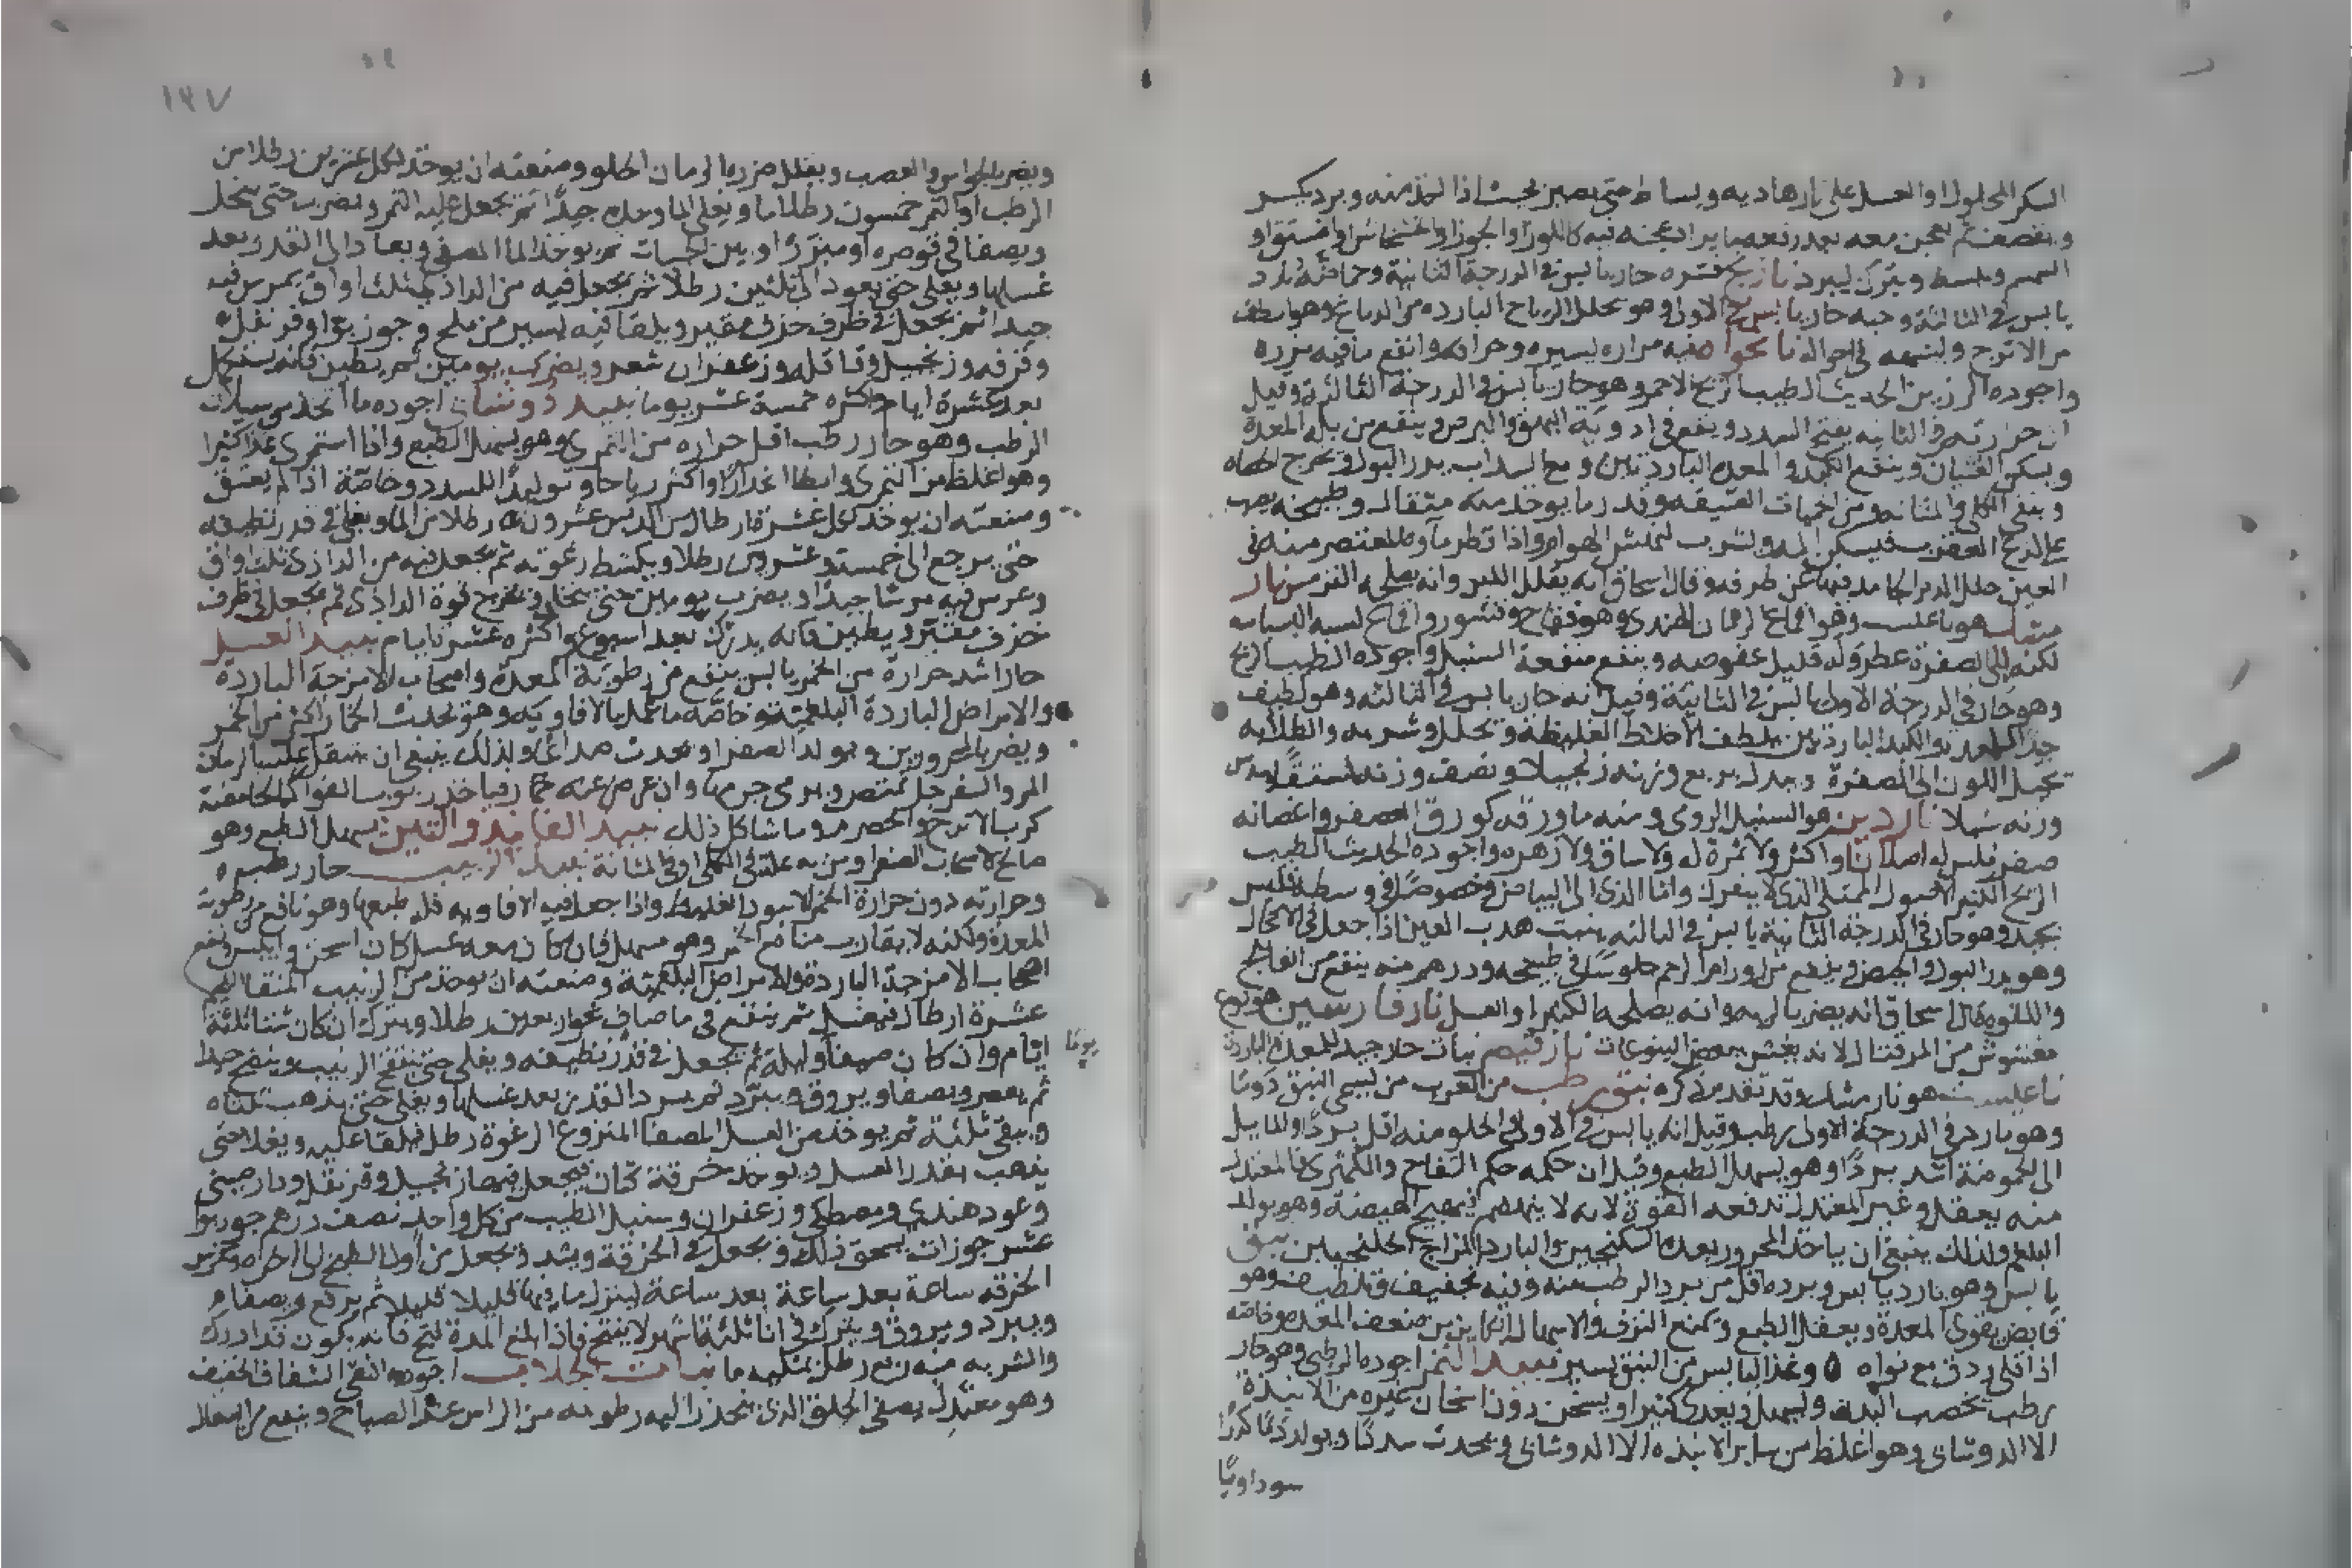 السكر المحلول او العسل على نار هاديه ويساط حتى يصير بحيث اذا اخذ منه وبرد يكسر
و يتقصف ثم يعجن معه بعد رفعه ما يراد عجنه فيه كاللوز او الجوز او الخشخاش او الفستق او
السمسم ويبسط ويترك ليبرد نارنج قشره حار يابس في الدرجة الثانية وحماضه بارد
يابس في الثالثة وحبه حار يابس في الاولى وهو يحلل الرياح الباردة من الدماغ وهو الطف
من الاترج ويشبهه في احواله نانخواه فيه مراره يسيره وحرافه وانفع ما فيه بزره
واجوده الرزين الحديث الطيب الريح الاحمر وهو حار يابس في الدرجة الثالثة وقيل
ان حرارته في الثانية يفتح السدد ويقع في ادوية البهق والبرص وينفع من بلة المعدة
ويسكن الغثيان وينفع الكبد والمعدة الباردتين ومع السداب يدر البول ويخرج الحصاه
وينقي الكلى والمثانه ومن الحميات العتيقه وقدر ما يوخذ منه مثقال وطبيخه يصب
على لدغ العقرب فيسكن المه ويشرب لنهش الهوام واذا قطر ماوه المعتصر منه في
العين حلل الدم الجامد فيها عن طرفه وقال اسحاق انه يقلل اللبن وانه يصلحه البزر نار
مشك هو ناغيست وهو اقماع الرمان الهندي وهو فقاح وقشور واقماع تشبه البسباسه
لكنه الى الصفرة عطر وله قليل عفوصه وينفع منفعة السنبل واجوده الطيب الريح
وهو حار في الدرجة الاولى يابس في الثانية وقيل انه حار يابس في الثالثه وهو لطيف
جيد للمعدة والكبد الباردتين يلطف الاخلاط الغليظة ويحلل وشربه والطلا به
يحيل اللون الى الصفرة وبدله ربع وزنه زنجبيلا ونصف وزنه فستقا وسدس
وزنه سنبلا ناردين هو السنبل الرومي ومنه ما ورقه كورق العصفر واغصانه
صفر ملس له اصلان او اكثر ولا ثمرة له ولا ساق ولا زهره واجوده الحديث الطيب
الريح الكثير الاصول الممتلي الذي لا ينفرك واما الذي الى البياض وخصوصا في وسطه فليس
بجيد وهو حار في الدرجة الثانية يابس في الثالثه ينبت هدب العين اذا جعل في الاكحال
وهو يدر البول والحيض وينفع من اورام الرحم جلوسا في طبيخه ودرهم منه ينفع من الفالج
واللقوه وقال اسحاق انه يضر بالريه وانه يصلحه الكثيرا والعسل نارفارسين هو نوع
مغشوش من المرقتال لانه يغش ببعض اليتوعات نارقيصر نبات حار جيد للمعدة الباردة
ناغيست هو نار مشك وقد تقدم ذكره نبق رطب من العرب من يسمي النبق دوما
وهو بارد في الدرجة الاولى رطب وقيل انه يابس في الاولى والحلو منه اقل بردا والمايل
الى الحموضة اشد بردا وهو يسهل الطبع وقيل ان حكمه حكم التفاح والكمثرى فالمعتدل
منه يعقل وغير المعتدل تدفعه القوة لانه لا ينهضم فيهيج الهيضة وهو يولد
البلغم ولذلك ينبغي ان ياخذ المحرور بعده السكنجبين والبارد المزاج الجلنجبين نبق
يابس وهو بارد يابس وبرده اقل من برد الرطب منه وفيه تجفيف وتلطيف وهو
قابض يقوى المعدة ويعقل الطبع ويمنع النزف والاسهال الكاين من ضعف المعدة وخاصه
اذا قلى ودق مع نواه ٥ وغذا اليابس من النبق يسير نبيذ التمر اجوده الرطبي وهو حار
رطب يخصب البدن ويسهل ويغذي كثيرا ويسخن دون اسخان غيره من الانبذة
الا الدوشابي وهو اغلظ من ساير الانبذه الا الدوشابي ويحدث سددا ويولد دما كدرا
سوداويا
١٤٧
ويضر بالحواس والعصب ويقلل ضرره الرمان الحلو وصنعته ان يوخذ لكل عشرين رطلا من
الرطب او التمر خمسون رطلا ما ويغلى الما وحده جيدا ثم يجعل عليه التمر ويضرب حتى ينحل
ويصفا في قوصره او مبزل او بين خيشات ثم يوخذ الما المصفى ويعاد الى القدر بعد
غسلها ويغلى حتى يعود الى ثلثين رطلا ثم يجعل فيه من الداذي ثلث اواق يمرس فيه
جيدا ثم يجعل في ظرف خزف مقير ويلقا فيه يسير من ملح وجوز بوا وقرنفل
وقرفه وزنجبيل وقاقله وزعفران شعر ويضرب يومين ثم يطين فانه يستكمل
بعد عشرة ايام واكثره خمسة عشر يوما نبيذ دوشابي اجوده ما اتخذ من سيلان
الرطب وهو حار رطب اقل حراره من التمري وهو يسهل الطبع واذا استمرى غذا كثيرا
وهو اغلظ من التمري وابطا انحدارا واكثر رياحا وتوليدا للسدد وخاصة اذا لم يعتق
وصنعته ان يوخذ لكل عشرة ارطال من الدبس عشرون رطلا من الما ويغلى في قدر نظيفه
حتى يرجع الى خمسة وعشرين رطلا ويكشط رغوته ثم يجعل فيه من الداذي ثلث اواق
ويمرس فيه مرسا جيدا ويضرب يومين حتى ينحل ويخرج قوة الداذي ثم يجعل في ظرف
خزف مقير ويطين فانه يدرك بعد اسبوع واكثره عشرة ايام نبيذ العسل
حار اشد حرارة من الخمر يابس ينفع من رطوبة المعدة واصحاب الامزجة الباردة
والامراض الباردة البلغمية وخاصه ما عمل بالافاويه وهو يحدث الخمار اكثر من الخمر
ويضر بالمحرورين ويولد الصفرا ويحدث صداعا ولذلك ينبغي ان يتنقل عليه بالرمان
المز والسفرجل يمتص ويرمى جرمها وان عرض عنه خمار فياخذ ربوب الفواكه الحامضة
كرب الاترج والحصرم وما شاكل ذلك نبيذ الفانيذ والتين يسهل الطبع وهو
صالح لاصحاب الصفرا ومن به علة في الكلى او في المثانة نبيذ الزبيب حار رطب
وحرارته دون حرارة الخمر لا سيودا الغليظ واذا جعل فيه الافاويه قل طبعها وهو نافع من رطوبة
المعدة ولكنه لا يقارب منافع الخمر وهو مسهل فان كان معه عسل كان اسخن وايبس ونفع
اصحاب الامزجة الباردة والامراض البلغمية وصنعته ان يوخذ من الزبيب المنقا اللحيم
عشرة ارطال فيغسل ثم ينقع في ما صاف نحو اربعين رطلا ويترك ان كان شتا ثلثة
ايام وان كان صيفا يوما وليلة ثم يجعل في قدر نظيفه ويغلى حتى ينتفخ الزبيب وينضج جدا
ثم يعصر ويصفا ويروق ويبرد ثم يرد الى القدر بعد غسلها ويغلى حتى يذهب ثلثاه
ويبقى ثلثه ثم يوخذ من العسل المصفا المنزوع الرغوة رطل فيلقا عليه ويغلا حتى
يذهب بقدر العسل ويوخذ خرقة كتان فيجعل فيها زنجبيل وقرنفل ودارصيني
وعود هندي ومصطكي وزعفران وسنبل الطيب من كل واحد نصف درهم جوز بوا
عشر جوزات يسحق ذلك ويجعل في الخرقة ويشد ويجعل من اول الطبخ الى اخره وتمرس
الخرقه ساعة بعد ساعة لينزل ما فيها قليلا قليلا ثم يرفع ويصفا
ويبرد ويروق ويترك في انا ثلثة اشهر لا يفتح فاذا بلغ المدة فتح فانه يكون قد ادرك
والشربه منه ربع رطل بمثليه ما نبات الجلاب اجوده النقي الشفاف الخفيف
وهو معتدل يصفى الحلق الذي ينحدر اليه رطوبه من الراس عند الصباح وينفع من السعال